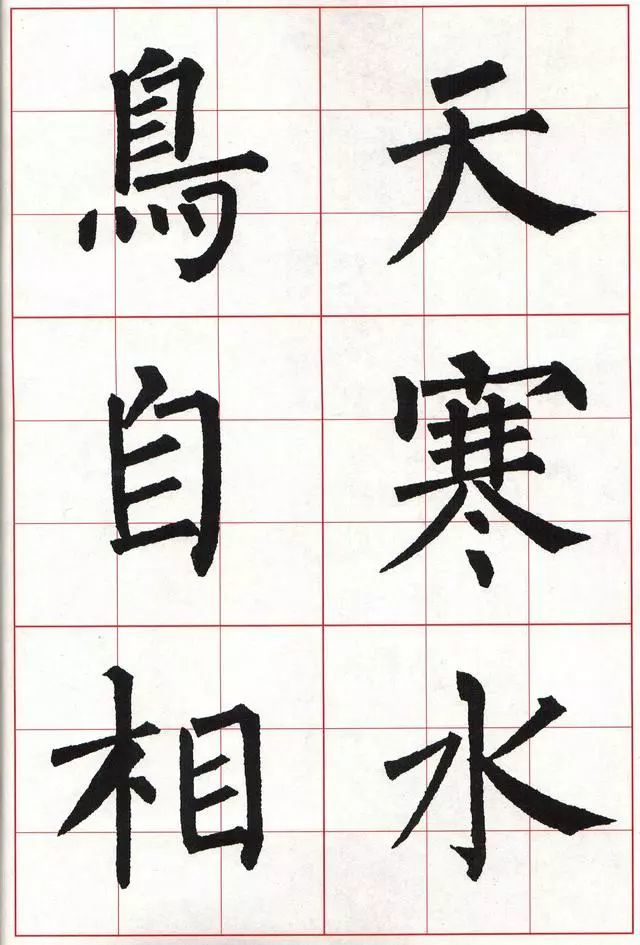 天寒水
鳥自相